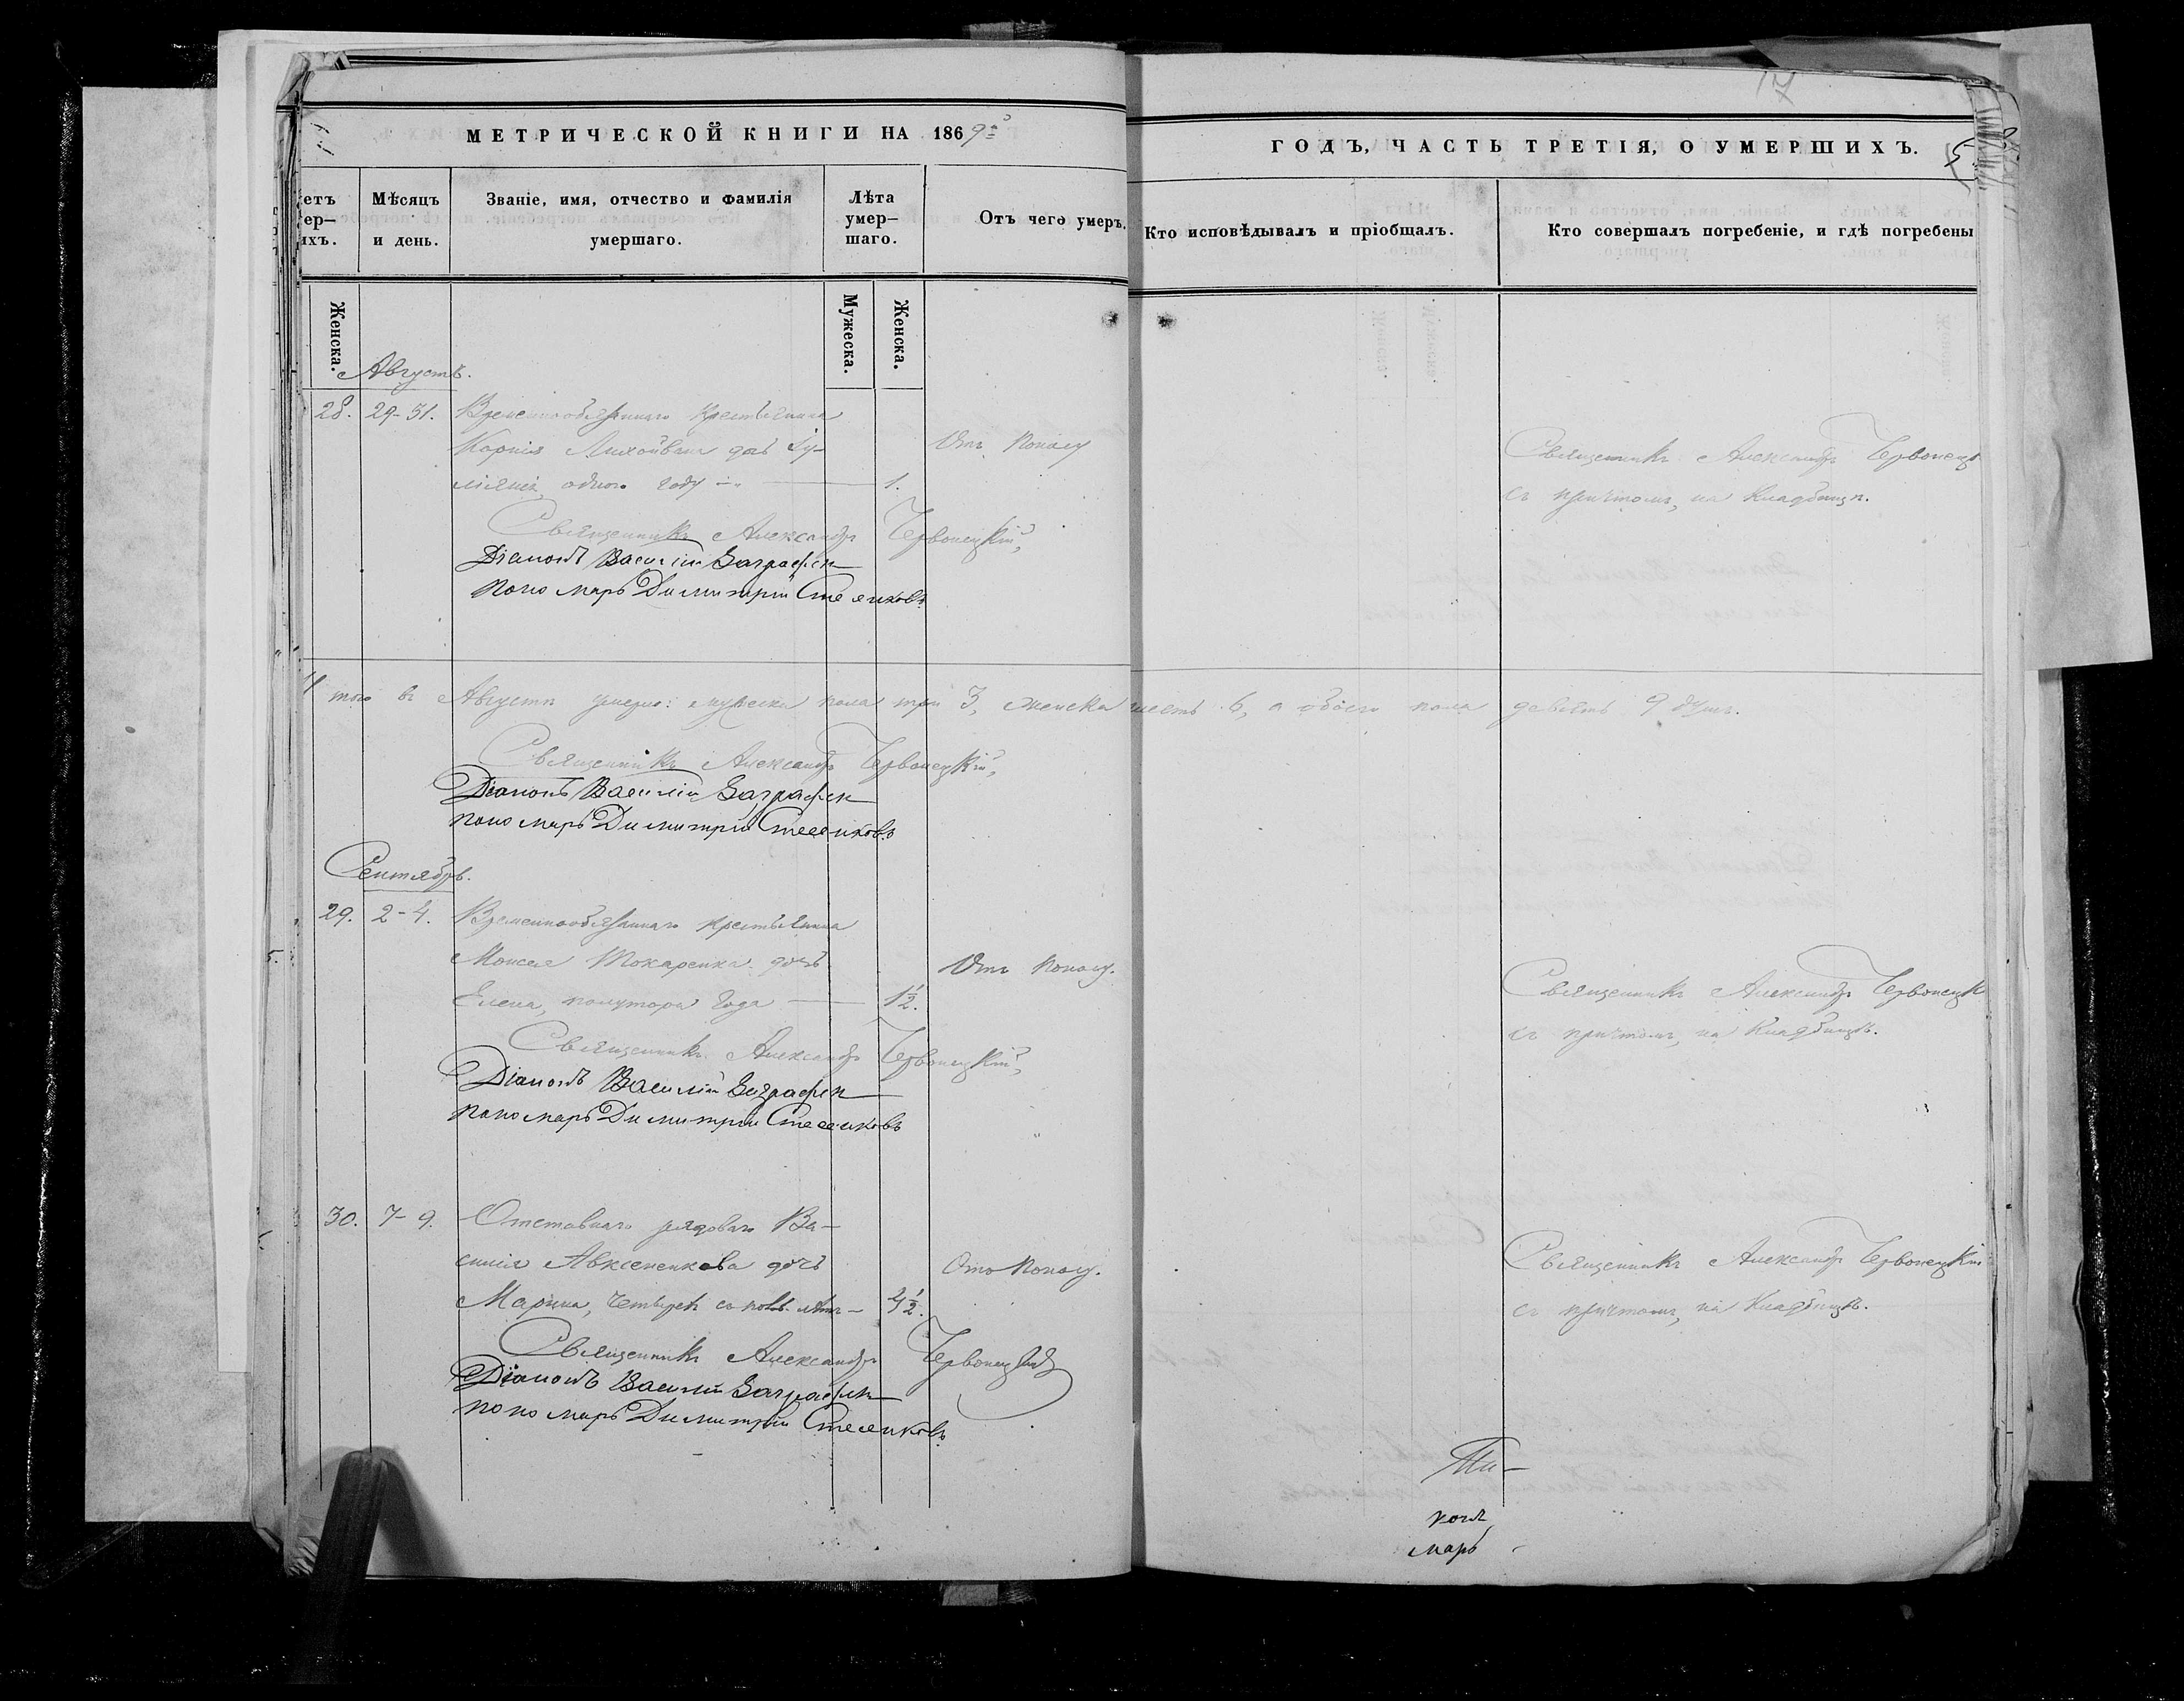 17
МЕТРИЧЕСКОЙ КНИГИ НА 1869й
ГОДЪ, ЧАСТЬ ТРЕТІЯ, О УМЕРШИХЪ.
5
етъ
ер-
ихъ.
Мѣсяцъ
и день.
Званіе, имя, отчество и фамилія
умершаго.
Лѣта
умер-
шаго.
Отъ чего умеръ.
Кто исповѣдывалъ и пріобщалъ.
Кто совершалъ погребеніе, и гдѣ погребены
Женска.
Мужеска.
Женска.
Августъ.
28. 29-31. Временнообязаннаго крестьянина
Корнія дочь Іу-
ліянія, одного году 1.
Отъ поносу
Священникъ Александръ Червонецк
съ причтомъ, на кладбищѣ.
Священникъ Александръ Червонецкій,
Діаконъ Василій
Пономарь Димитрій
того въ Августѣ умерло: мужеска пола три 3, женска шесть 6, а обоего пола девять 9 душъ.
Священникъ Александръ Червонецкій,
Діаконъ Василій
пономарь Димитрій
Сентябрь.
29. 2-4. Временнообязаннаго крестьянина
Моисея Токаренка дочь
Елена, полутора года 1½.
Отъ поносу.
Священникъ Александръ Червонецк
съ причтомъ, на кладбищѣ.
Священникъ Александръ Червонецкій,
Діаконъ Василій
пономарь Димитрій
30. 7-9. Отставнаго рядоваго Ва-
силія Авксененкова дочь
Марина, четырехъ съ пол. лѣтъ 4½.
Отъ поносу.
Священникъ Александръ Червонецкій
съ причтомъ, на кладбищѣ.
Священникъ Александръ Червонецкій
Діаконъ Василій
пономарь Димитрій
марь